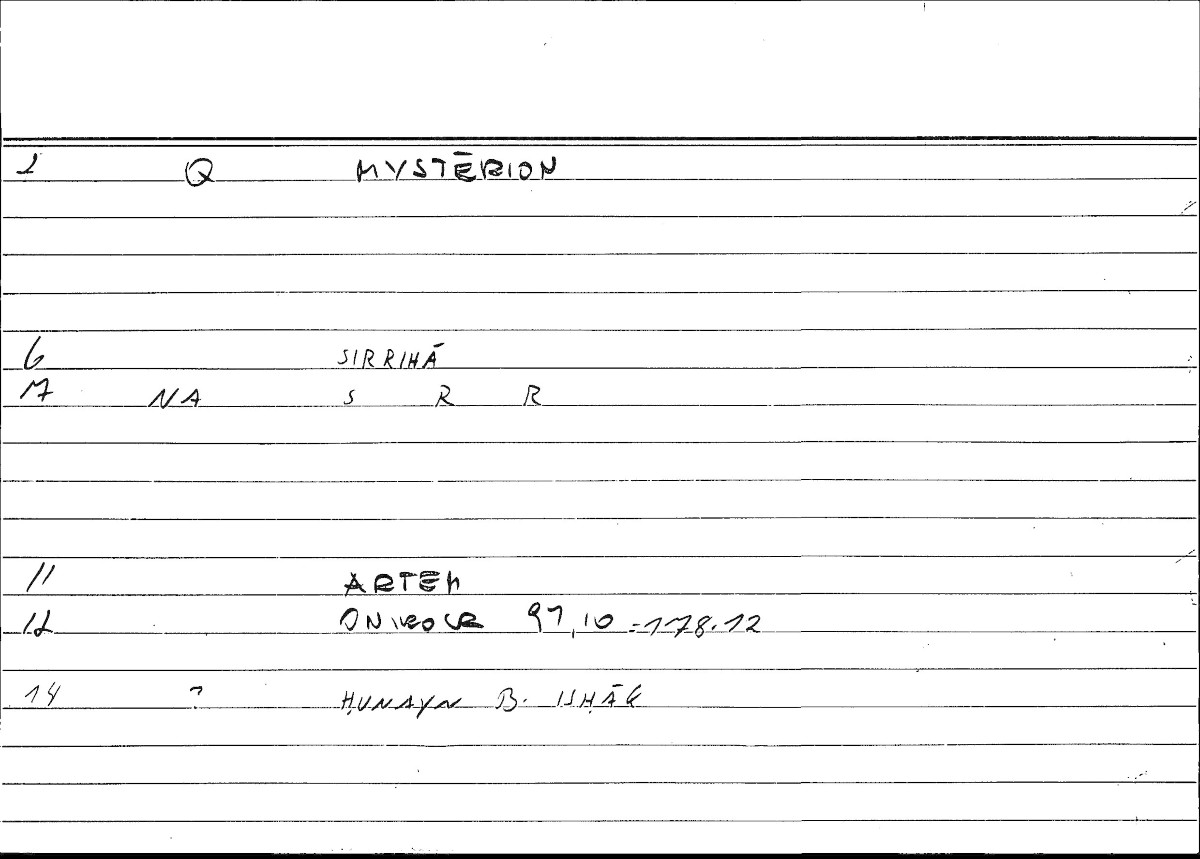 1 Q MYSTĒRION
6 SIRRIHĀ
7 NA S R R
11 ARTEM
12 ONIROCR 97,10 = 178.12
14 ? ḤUNAYN B. ISḤĀḲ